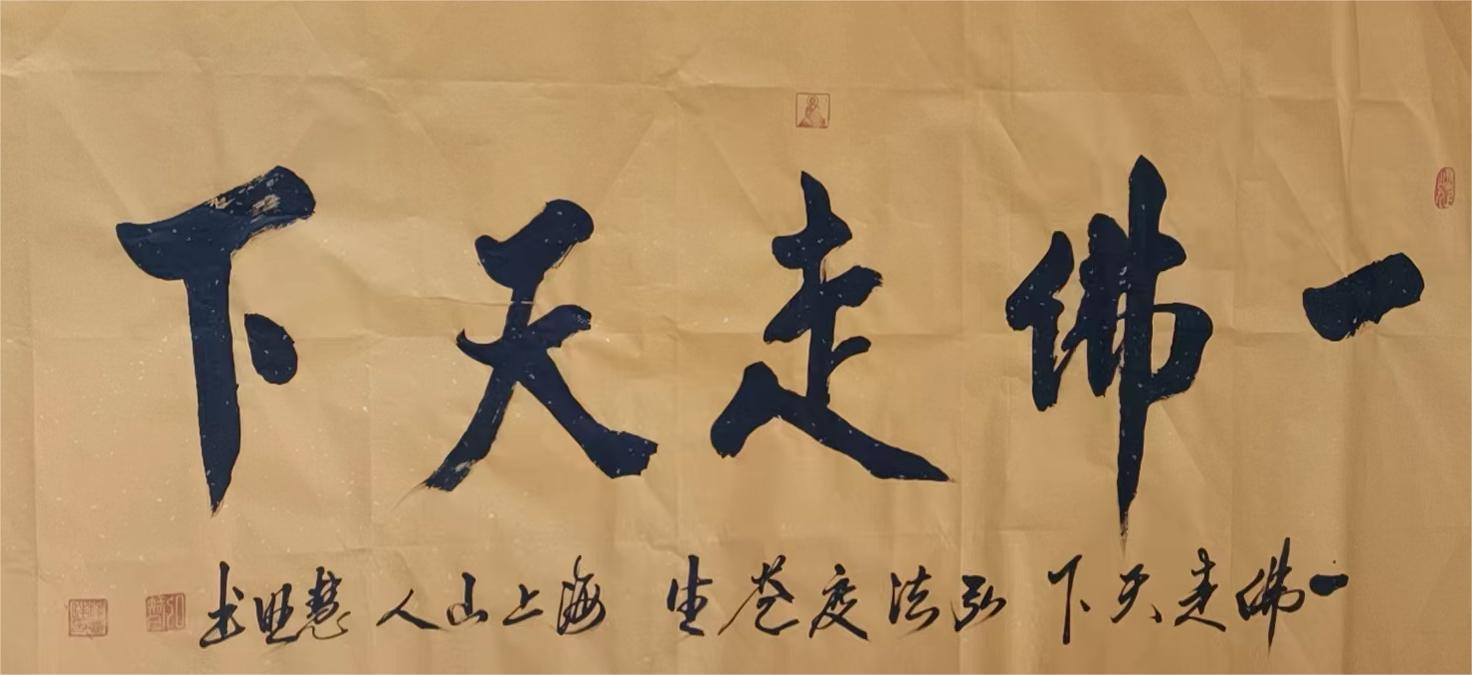 一佛走天下
一佛走天下 弘法度苍生 海上山人 慧思书